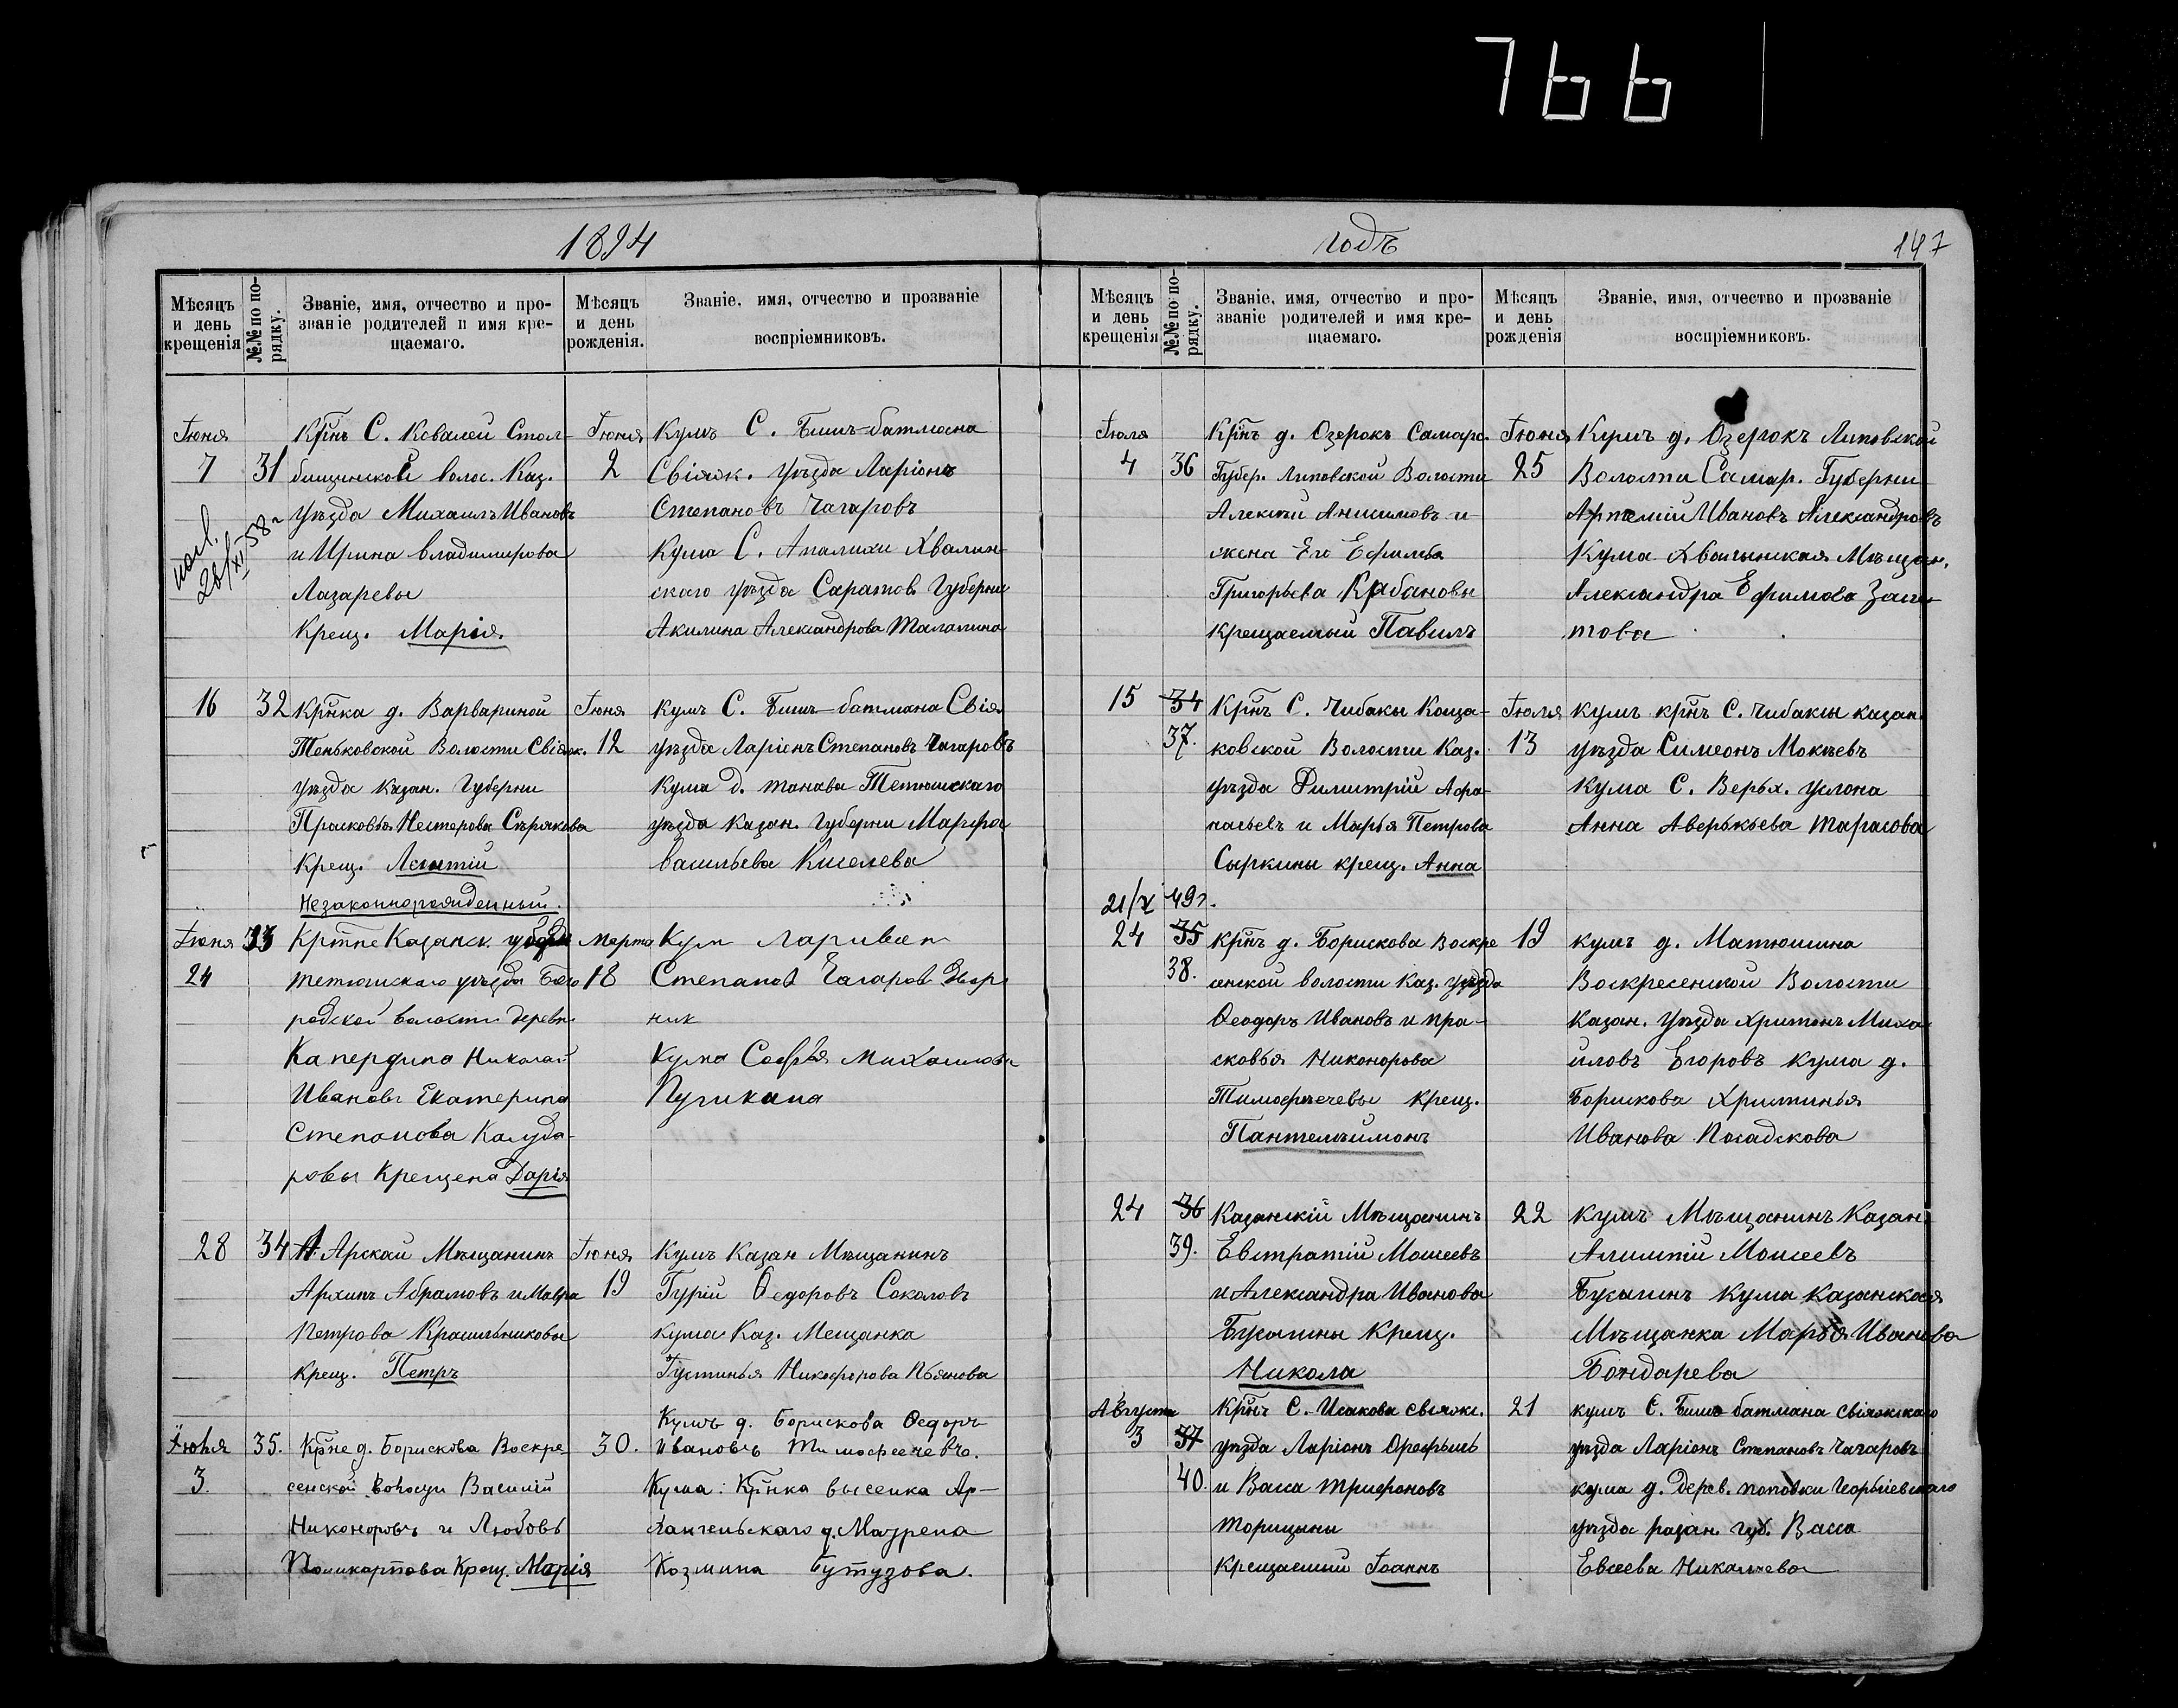 766
1894
годъ
147
Мѣсяцъ и день крещенія
№№ по порядку.
Званіе, имя, отчество и прозваніе родителей и имя крещаемаго.
Мѣсяцъ и день рожденія.
Званіе, имя, отчество и прозваніе воспріемниковъ.
Іюня
7
31
Крнъ С. Ковалей Стол-
бищенской волос. Каз.
уѣзда Михаилъ Ивановъ
и Ирина Владимирова
Лазаревы
Крещ. Марія.
26/XI 58 г
Іюня
2
Кумъ С. Бишъ-батмана
Свіяжк. уѣзда Ларіонъ
Степановъ Чагаровъ
Кума С. Апалихи Хвалин-
скаго уѣзда Саратов. Губерни
Акилина Александрова Талапина
16
32
Крнка д. Варвариной
Теньковской Волости Свіяжк.
уѣзда Казан. Губерни
Прасковья Нестерова Сѣрякова
Крещ. Леонтій
Незаконнорожденный.
Іюня
12
Кумъ С. Бишъ-батмана Свія
уѣзда Ларіонъ Степановъ Чагаровъ
Кума д. Танава Тетюшскаго
уѣзда Казан. Губерни Марфа
Васильева Киселева
Іюня
24
33
Кртне Казанск. губерн
тетюшскаго уѣзда Бого
родской волости деревн
Капердино Николай
Иванов Екатерина
Степанова Калуда-
ровы Крещена Дарія
Марта
18
Кум Ларивон
Степанов Чагаров Двор
ник
Кума Софья Михаилова
Пугикина
28
34
Арскай Мѣщанинъ
Архипъ Абрамовъ и Мавра
Петрова Красильниковы
Крещ. Петръ
Іюня
19
Кумъ Казан Мѣщанинъ
Гурій Ѳедоровъ Соколовъ
кума Каз. Мещанка
Іустинья Никифорова Пьянова
Іюля
3.
35.
Крне д. Борискова Воскре
сенской волости Василій
Никоноровъ и Любовь
Поликарпова Крещ. Марія
30.
Кумъ д. Борискова Ѳедоръ
Ивановъ Тимофеечевъ.
Кума: Крнка выселка Ар-
хангельскаго д. Мавренa
Козмина Бутузова.
Мѣсяцъ и день крещенія
№№ по порядку.
Званіе, имя, отчество и прозваніе родителей и имя крещаемаго.
Мѣсяцъ и день рожденія
Званіе, имя, отчество и прозваніе воспріемниковъ.
Іюля
4
36
Крнъ д. Озерокъ Самарс.
Губер. Липовской Волости
Алексѣй Анисимовъ и
жена Его Ефимья
Григорьева Кабановы
крещаемый Павилъ
Іюня
25
Кумъ д. Озерокъ Липовской
Волости Самар. Губерни
Артемій Ивановъ Александровъ
Кума Хвалынская Мѣщан.
Александра Ефимова
това
15
34
37.
Крнъ С. Чибакы Коща-
ковской Волости Каз.
уѣзда Димитрій Афа-
насьевъ и Марья Петрова
Сыркины крещ. Анна
21/X 49 г.
Іюля
13
Кумъ крнъ С. Чибаксы казан.
уѣзда Симеонъ Мокѣевъ
Кума С. Верьх. услона
Анна Аверькьева Тарасова
24
35
38.
Крнъ д. Борискова Воскре
сенской волости Каз. уѣзда
Ѳеодоръ Ивановъ и Пра-
сковья Никонорова
Тимофѣечевы Крещ.
Пантелѣимонъ
19
Кумъ д. Матюшина
Воскресенской Волости
Казан. уѣзда Хритонъ Миха
иловъ Егоровъ кума д.
Борискова Христинья
Иванова Посадскова
24
36
39.
Казанскій Мѣщанинъ
Евстратій Моисеевъ
и Александра Иванова
Бусыгины Крещ.
Никола
22
Кумъ Мѣщанинъ Казан.
Алимпій Моисеевъ
Бусыгинъ Кума Казанская
Мѣщанка Марья Иванова
Бондарева
Августа
3
37
40.
Крнъ С. Исакова свіяжс.
уѣзда Ларіонъ Орефьевъ
и Васса Трифоновъ
Торицыны
Крещаемый Іоаннъ
21
кумъ С. Бишъ батмана свіяжскаго
уѣзда Ларіонъ Степановъ Чагаровъ
кума д. Дерев. поповки Чорьевскаго
уѣзда разан. губ. Васса
Евсеева Никалаева